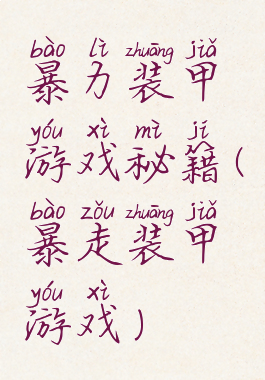 bào lì zhuāng jiǎ
暴力装甲
yóu xì mì jí
游戏秘籍(
bào zǒu zhuāng jiǎ
暴走装甲
yóu xì
游戏)